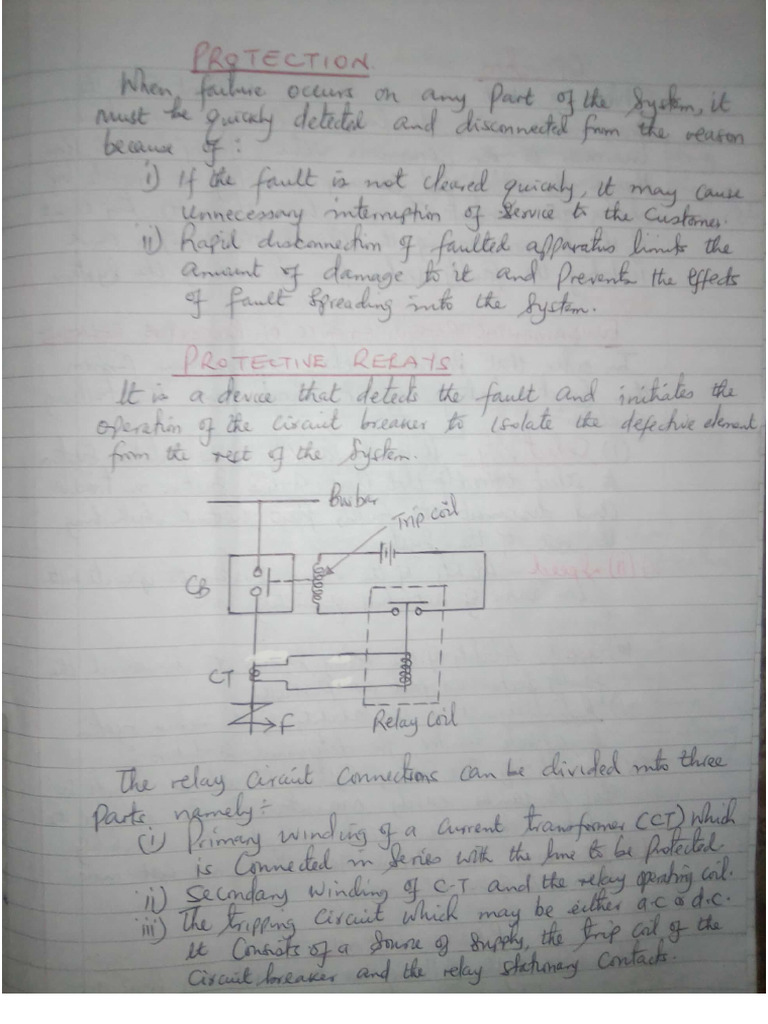 PROTECTION
When failure occurs on any part of the System, it
must be quickly detected and disconnected from the reason
because of :
i) If the fault is not cleared quickly, it may cause
Unnecessary interruption of Service to the Customer.
ii) Rapid disconnection of faulted apparatus limits the
amount of damage to it and Prevents the effects
of fault Spreading into the System.
PROTECTIVE RELAYS:
It is a device that detects the fault and initiates the
operation of the Circuit breaker to isolate the defective element
from the rest of the System.
Busbar
Trip coil
CB
CT
F
Relay Coil
The relay circuit Connections can be divided into three
Parts namely:-
(i) Primary winding of a Current transformer (CT) which
is Connected in Series with the line to be Protected.
ii) Secondary Winding of C.T and the relay operating coil.
iii) The tripping Circuit which may be either a.c or d.c.
it Consists of a Source of Supply, the trip Coil of the
Circuit breaker and the relay stationary Contacts.